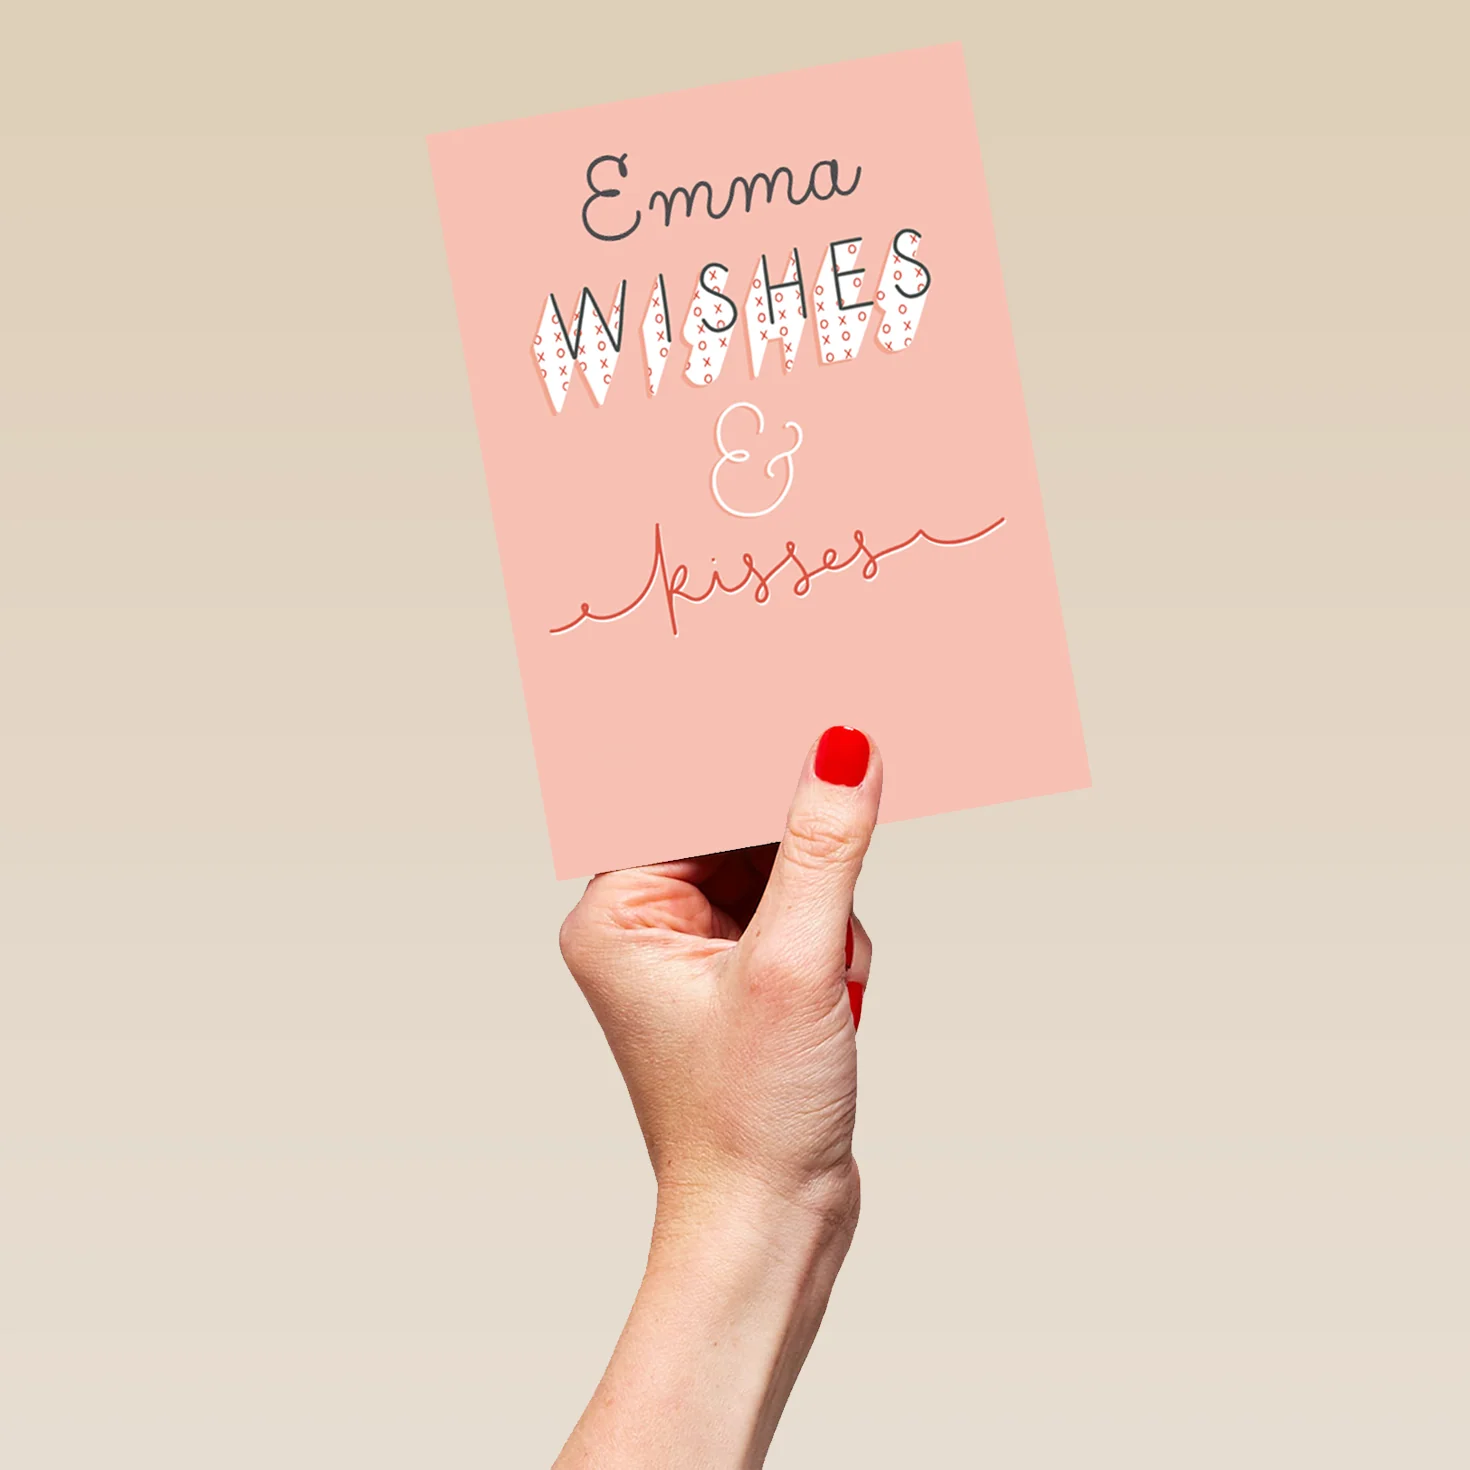 Emma
WISHES
&
kisses